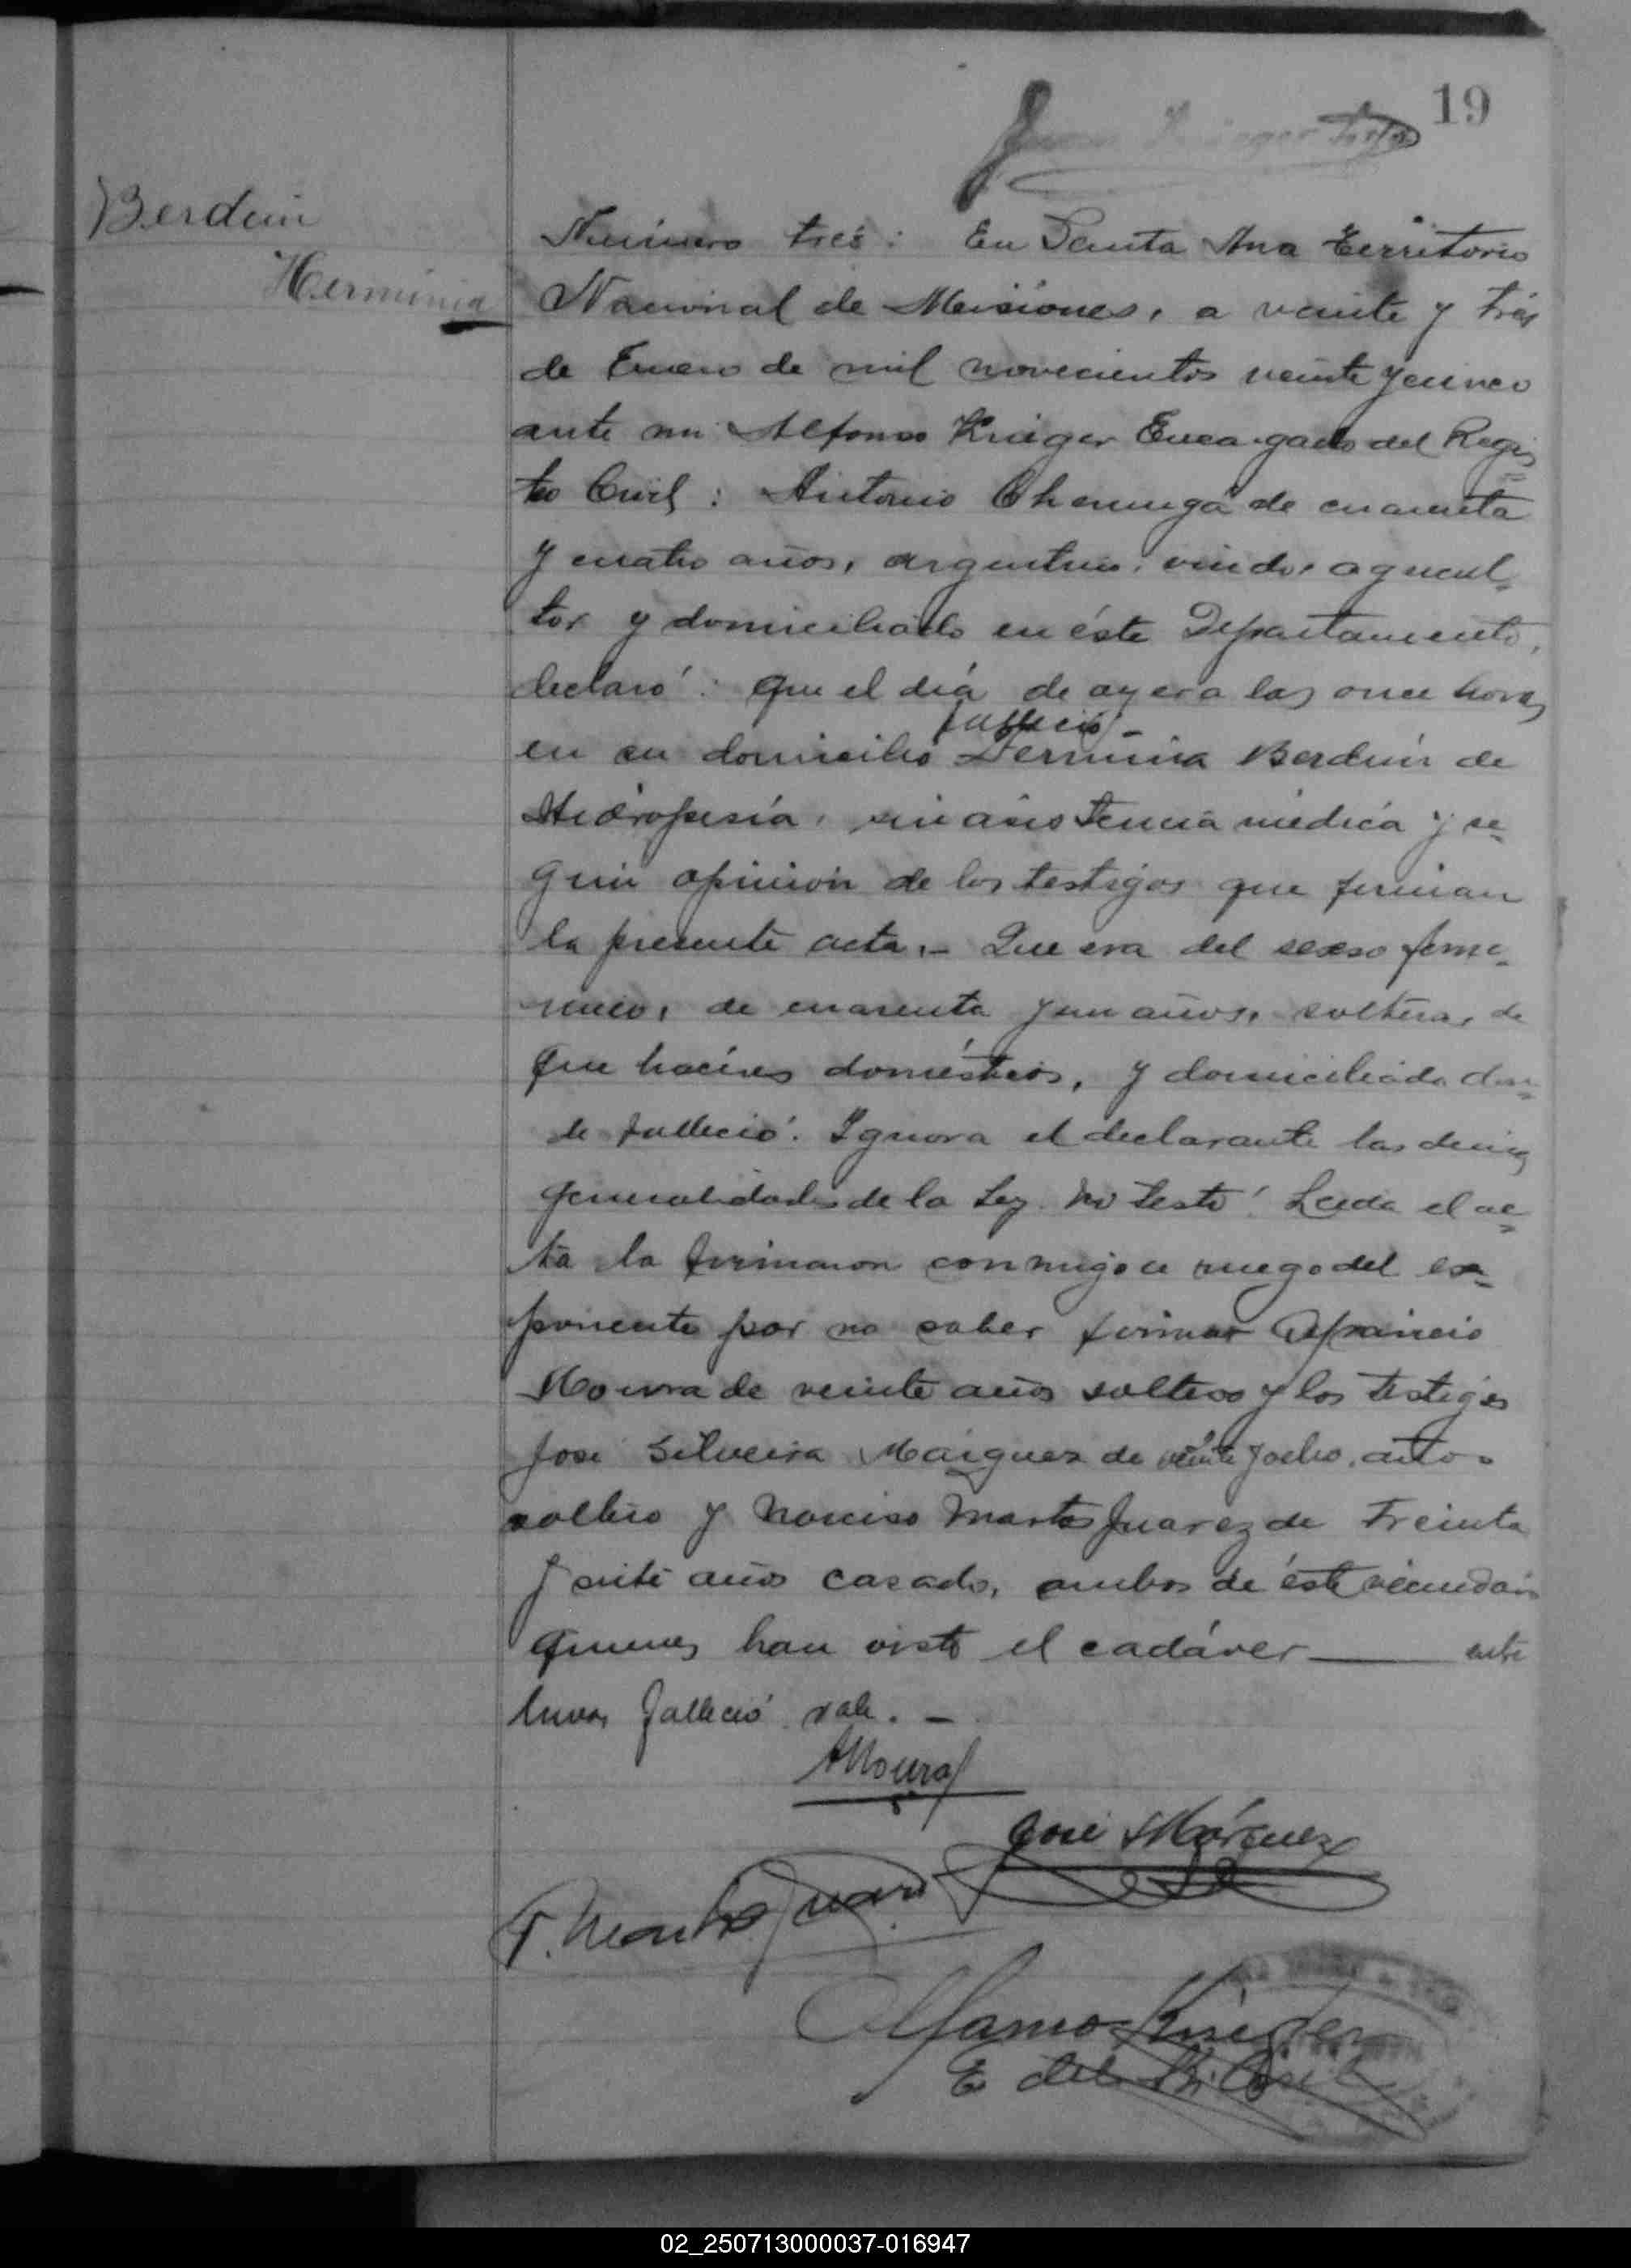 19
Berduin
Herminia
Número tres: En Santa Ana Territorio
Nacional de Misiones, a veinte y tres
de Enero de mil novecientos veinte y cinco
ante mi Alfonso Krieger Encargado del Regis
tro Civil: Antonio de cuarenta
y cuatro años, argentino, viudo, agricul
tor y domiciliado en éste Departamento,
declaró: que el día de ayer a las once horas
falleció
en su domicilio Herminia Berduin de
Hidropesía, sin asistencia médica y se
gún opinión de los testigos que firman
la presente acta.- Que era del sexo feme
nino, de cuarenta y un años, soltera, de
que haceres domésticos, y domiciliada don
de falleció. Ignora el declarante las demás
generalidades de la Ley. No testó. Leida el ac
ta la firmaron conmigo a ruego del ex
ponente por no saber firmar
Moura de veinte años soltero y los testigos
José Silveira Marquez de veinte y ocho años
soltero y Narciso Martos Juarez de treinta
y siete años casado, ambos de éste vecindario
quienes han visto el cadáver entre
lineas falleció vale.-
AMoura
José Márquez
Juarez
Alfonso Krieger
E del R. Civil
02_250713000037-016947